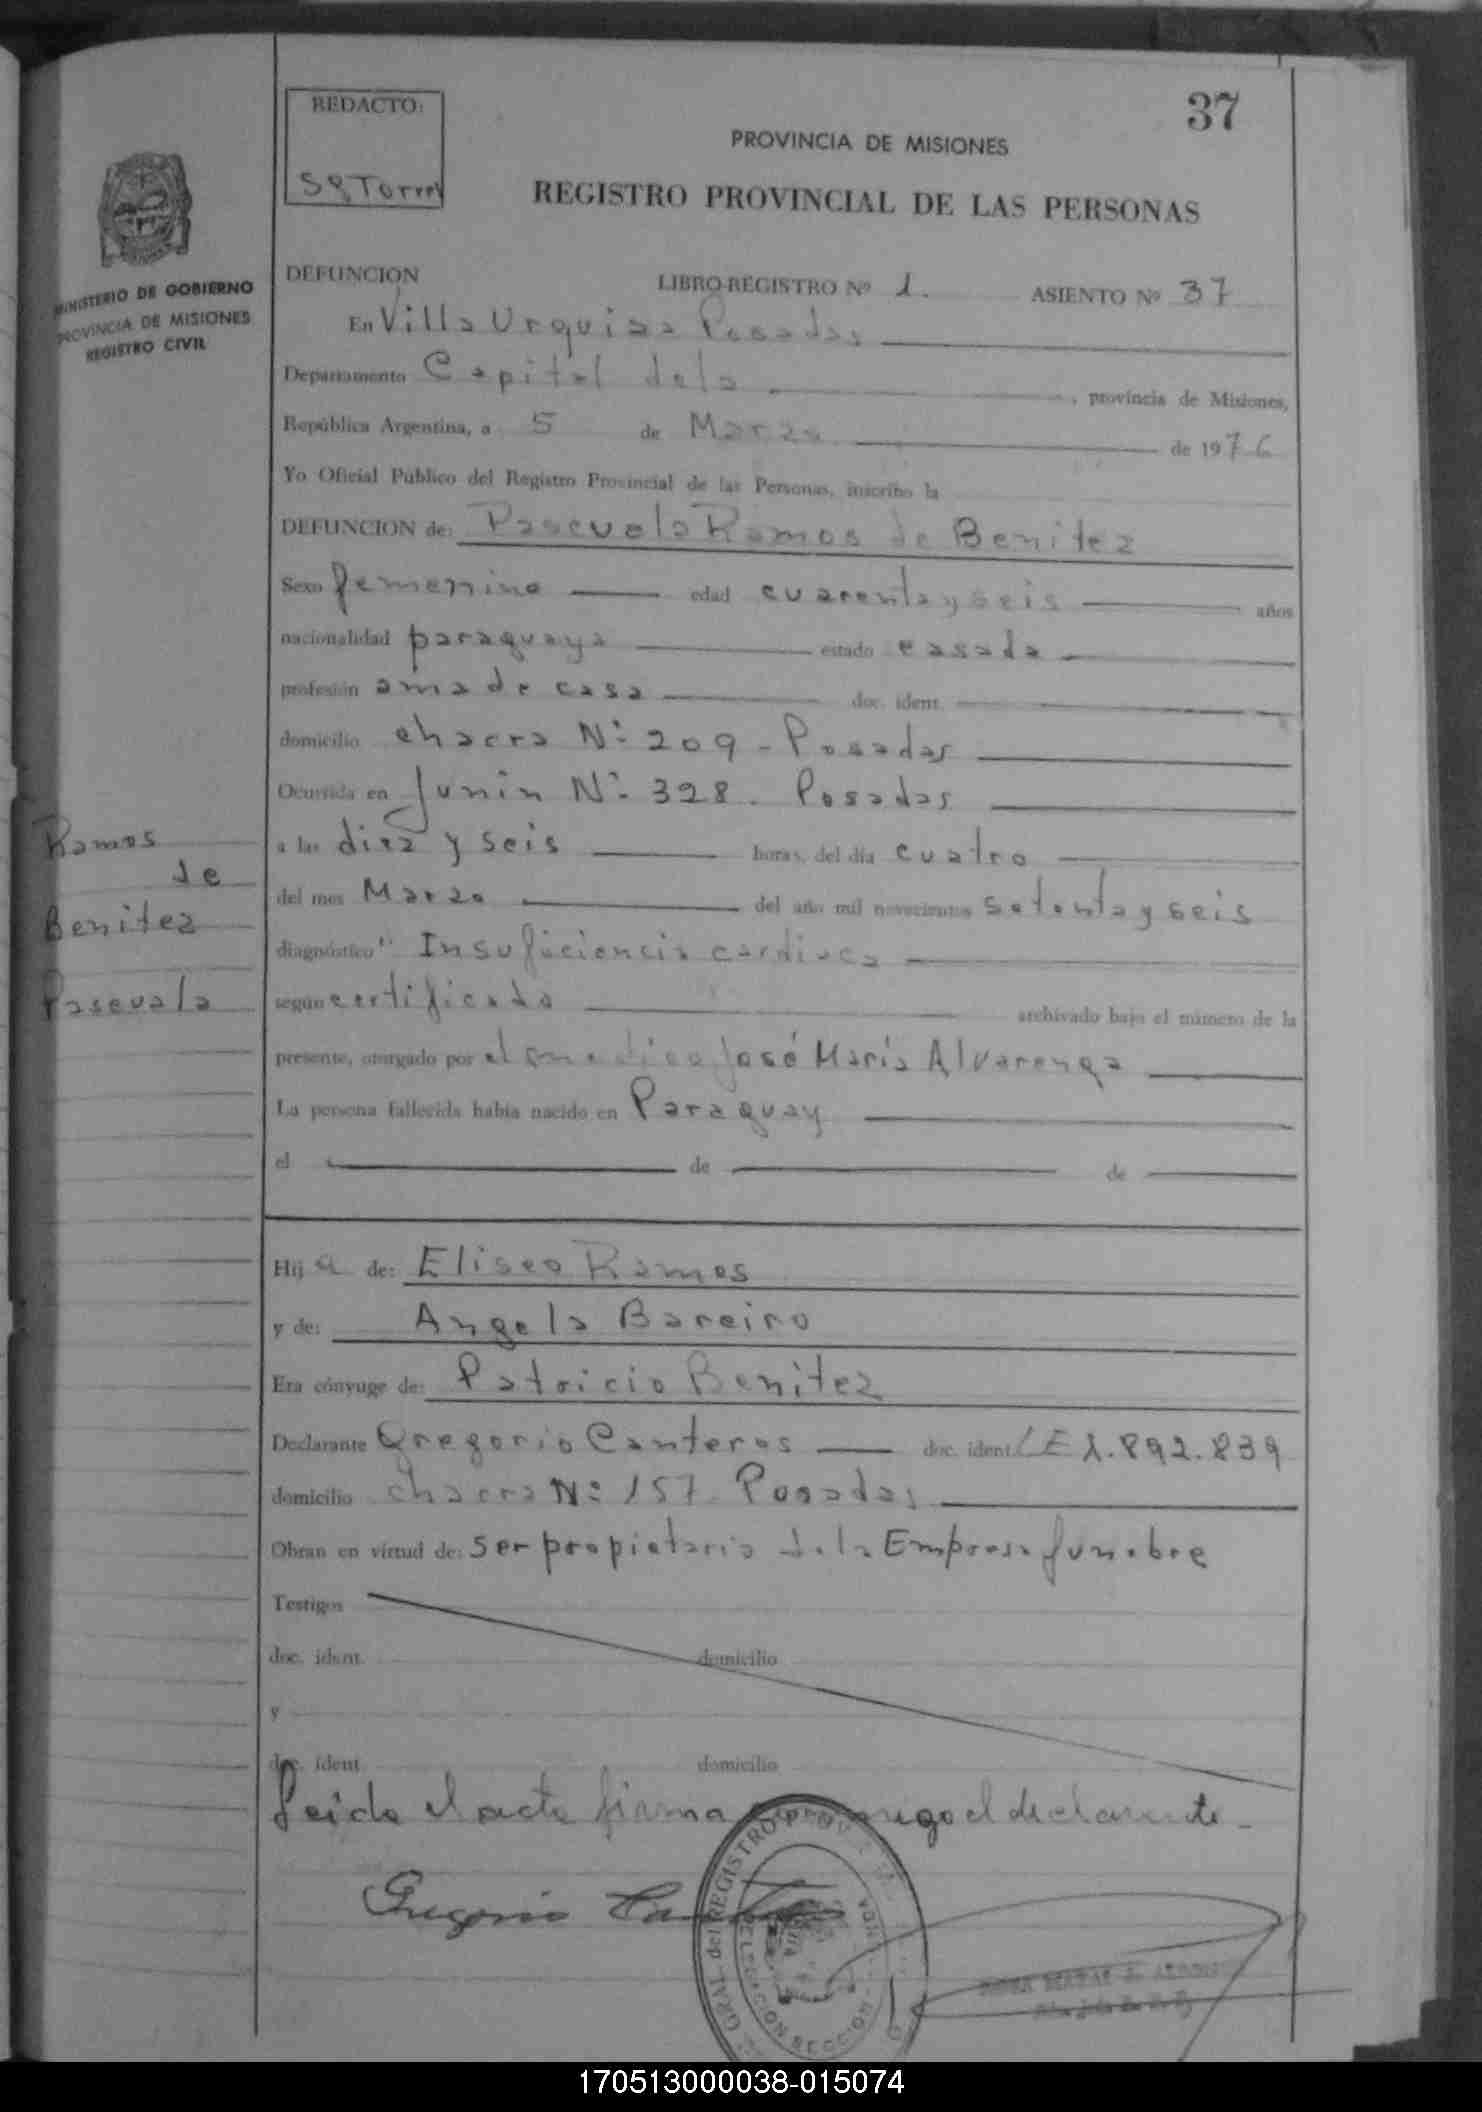 REDACTO:
37
PROVINCIA DE MISIONES
REGISTRO PROVINCIAL DE LAS PERSONAS
MINISTERIO DE GOBIERNO
PROVINCIA DE MISIONES
REGISTRO CIVIL
DEFUNCION LIBRO-REGISTRO Nº 1. ASIENTO Nº 37
En Villa Urquiza Posadas
Departamento Capital dela , provincia de Misiones,
República Argentina, a 5 de Marzo de 1976
Yo Oficial Público del Registro Provincial de las Personas, inscribo la
DEFUNCION de: Pascuala Ramos de Benitez
Sexo femenino edad cuarenta y seis años
nacionalidad paraguaya estado casada
profesión ama de casa doc. ident.
domicilio chacra Nº 209 - Posadas
Ocurrida en Junin Nº 328. Posadas
a las diez y seis horas, del día cuatro
del mes Marzo del año mil novecientos setenta y seis
diagnóstico Insuficiencia cardiaca
según certificado archivado bajo el número de la
presente, otorgado por el medico José Maria Alvarenga
La persona fallecida había nacido en Paraguay
el de de
Ramos
de
Benitez
Pascuala
Hija de: Eliseo Ramos
y de: Angela Bareiro
Era cónyuge de: Patricio Benitez
Declarante Gregorio Canteros doc. ident. LE 1.892.839
domicilio chacra Nº 157 Posadas
Obran en virtud de: ser propietario dela Empresa funebre
Testigos
doc. ident. domicilio
y
doc. ident. domicilio
Leida el acta firma conmigo el declarante
Gregorio
GRAL. del REGISTRO
SECCION
170513000038-015074